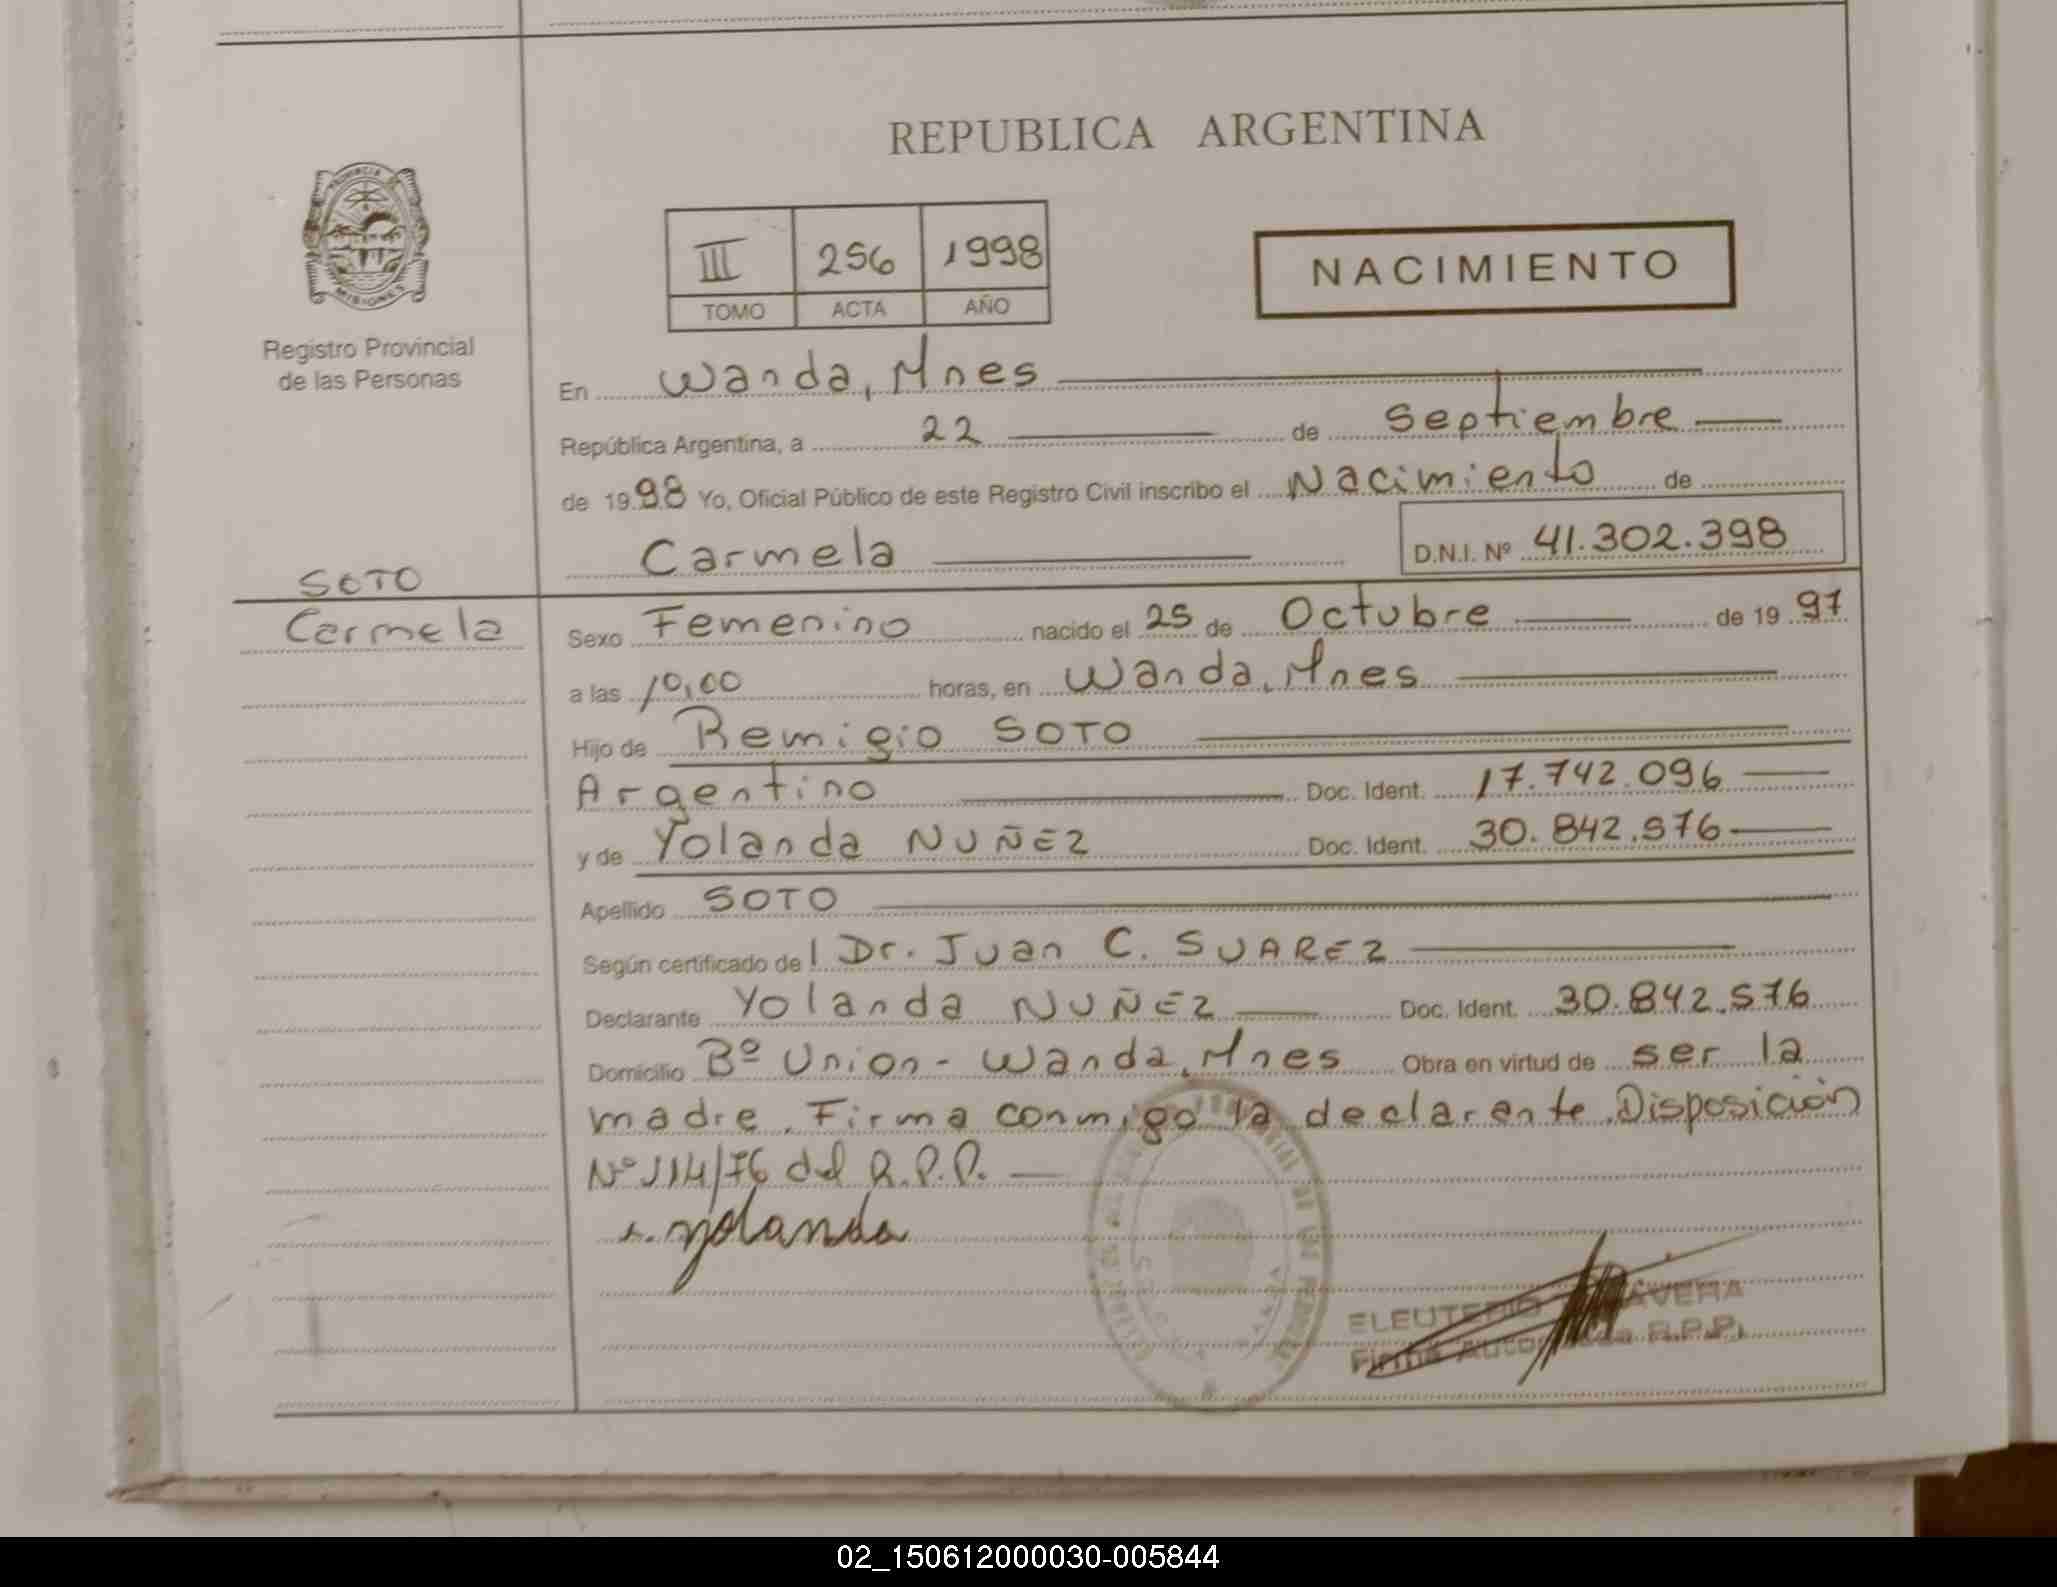 REPUBLICA ARGENTINA
PROVINCIA DE
MISIONES
Registro Provincial
de las Personas
III 256 1998
TOMO ACTA AÑO
NACIMIENTO
En Wanda, Mnes
República Argentina, a 22 de Septiembre
de 1998 Yo, Oficial Público de este Registro Civil inscribo el Nacimiento de
Carmela D.N.I. Nº 41.302.398
SOTO
Carmela
Sexo Femenino nacido el 25 de Octubre de 1997
a las 10,00 horas, en Wanda, Mnes
Hijo de Remigio SOTO
Argentino Doc. Ident. 17.742.096
y de Yolanda NUÑEZ Doc. Ident. 30.842.576
Apellido SOTO
Según certificado del Dr. Juan C. SUAREZ
Declarante Yolanda NUÑEZ Doc. Ident. 30.842.576
Domicilio Bº Union - Wanda, Mnes Obra en virtud de ser la
madre. Firma conmigo la declarante. Disposición
Nº 114/76 del R.P.P.
Yolanda
ELEUTERIO
Firma R.P.P.
02_150612000030-005844